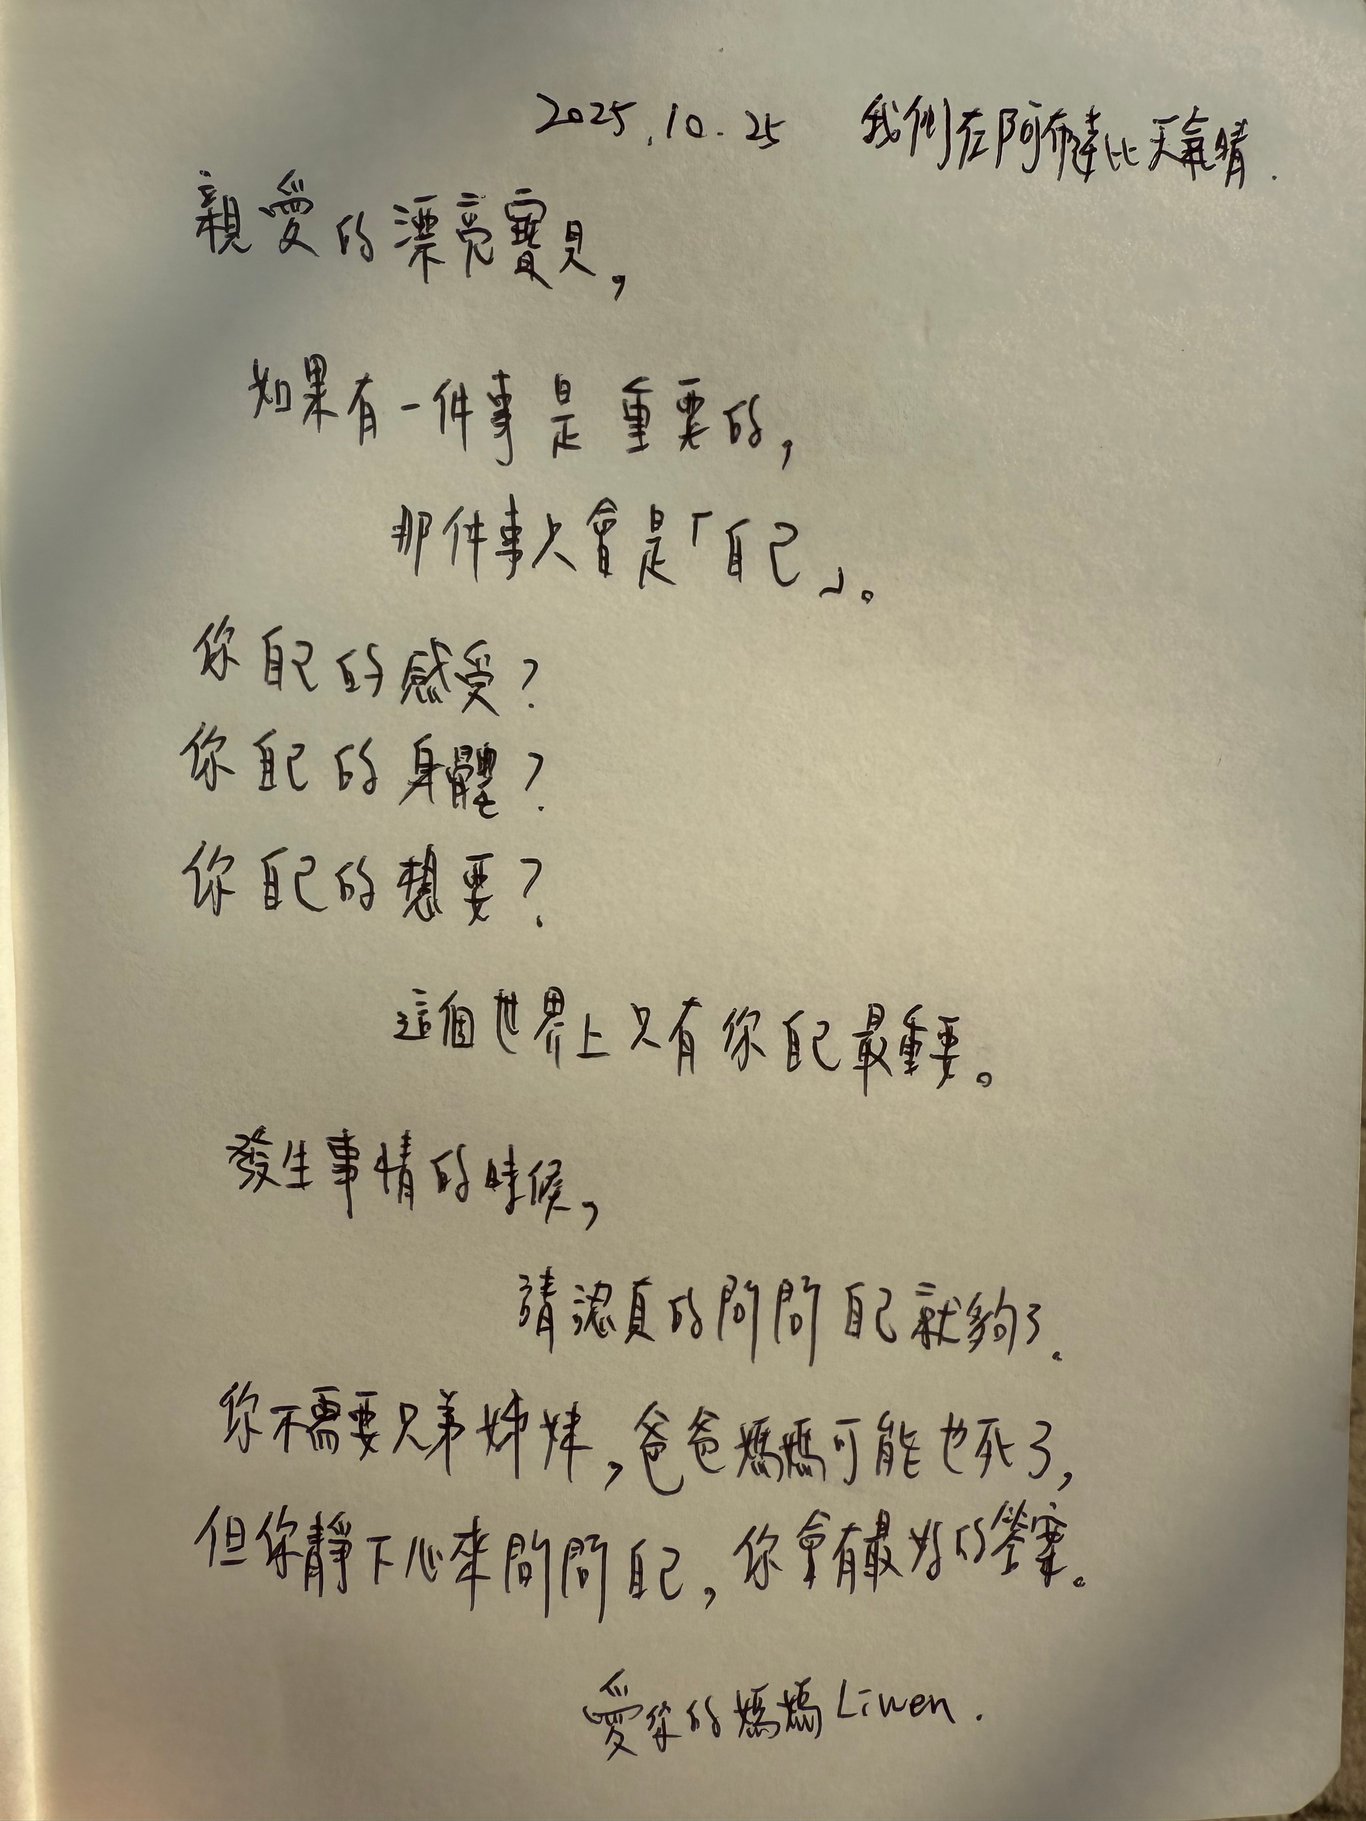 2025.10.25 我們在阿布達比天氣晴.
親愛的漂亮寶貝,
如果有一件事是重要的,
那件事只會是「自己」。
你自己的感受?
你自己的身體?
你自己的想要?
這個世界上只有你自己最重要。
發生事情的時候,
請認真的問問自己就夠了.
你不需要兄弟姊妹,爸爸媽媽可能也死了,
但你靜下心來問問自己,你會有最好的答案。
愛你的媽媽Liwen.